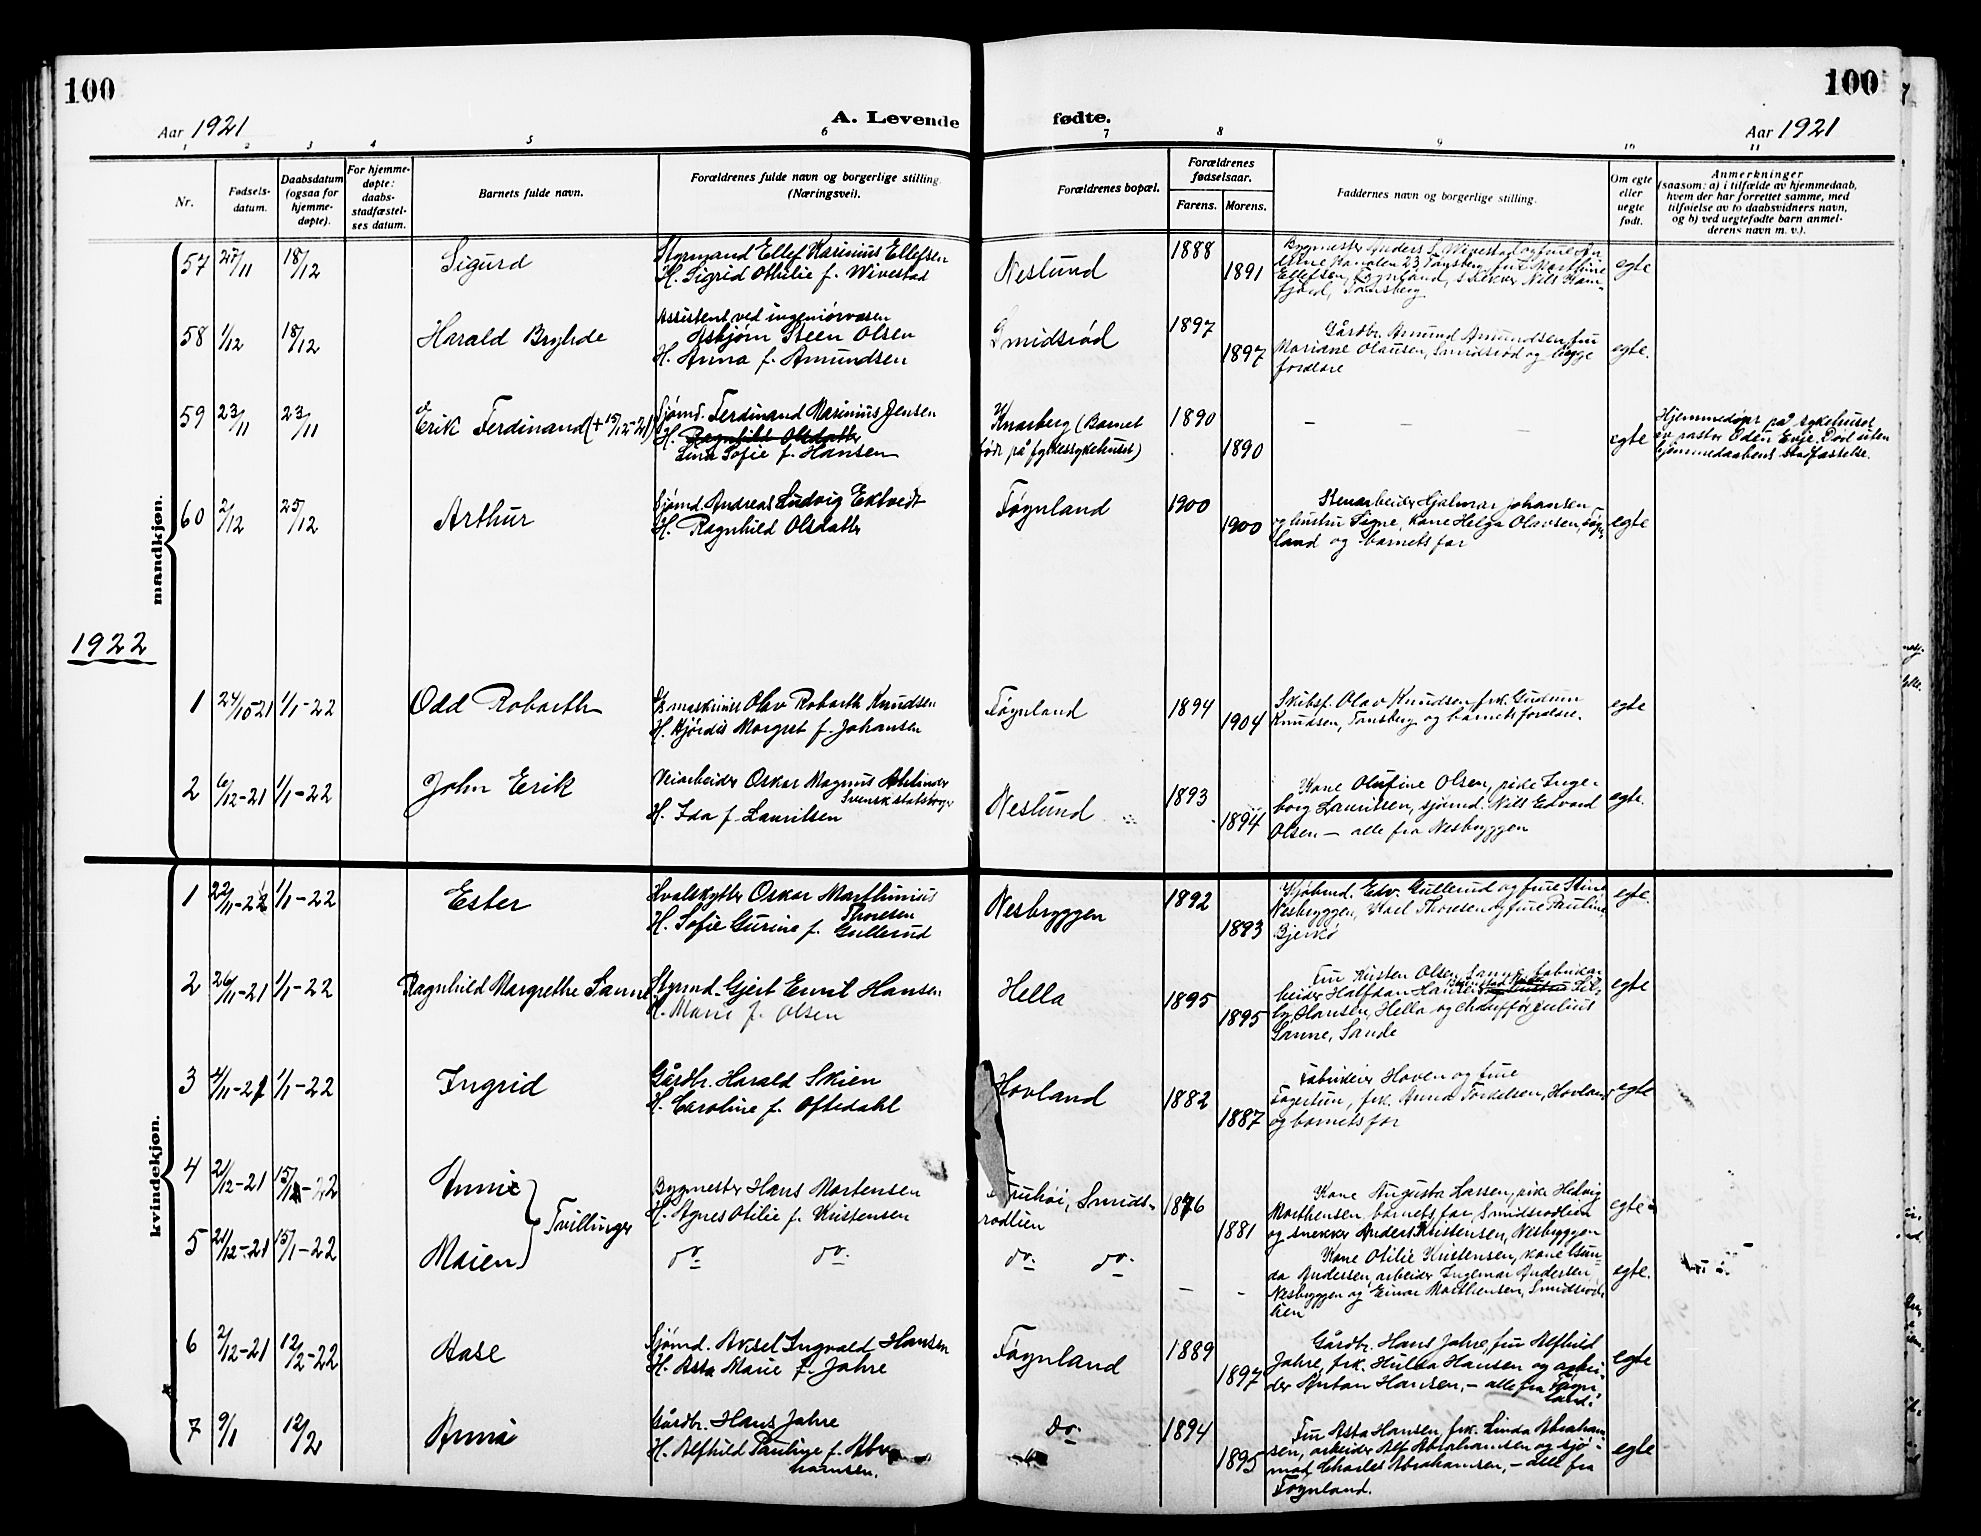 100
100
Aar 1921
A. Levende fødte.
Aar 1921
1 2 3 4 5 6 7 8 9 10 11
Nr.
Fødsels-
datum.
Daabsdatum
(ogsaa for
hjemme-
døpte).
For hjemme-
døpte:
daabs-
stadfæstel-
ses datum.
Barnets fulde navn.
Forældrenes fulde navn og borgerlige stilling
(Næringsvei).
Forældrenes bopæl.
Forældrenes
fødselsaar.
Farens. Morens.
Faddernes navn og borgerlige stilling.
Om egte
eller
uegte
født.
Anmerkninger
(saasom: a) i tilfælde av hjemmedaab,
hvem der har forrettet samme, med
tilføielse av to daabsvidners navn,
og b) ved uegtefødte barn anmel-
derens navn m. v.).
mandkjøn.
57 27/11 18/12 Sigurd
Styrmand Ellef Marinius Ellefsen
H. Sigrid Othilie f. Wivestad
Neslund
1888
1891
Bygmester Anders L. Wivestad og frue
Kanalen 23 Tønsberg, frue Marthine
Ellefsen, Føynland, snekker Nils Ram-
fjord, Tønsberg
egte
58 1/12 18/12 Harald Bryhde
Assistent ved ingeniørvæsen
Asbjørn Steen Olsen
H. Anna f. Amundsen
Smidsrød
1897
1897
Gårdbr. Amund Amundsen, fru
Mariane Olausen, Smidsrød og begge
foreldre
egte.
59 23/11 23/11 Erik Ferdinand (+ 15/12-21)
Sjømd. Ferdinand Marinius Jensen
H. Ragnhild Olsdatter
Lina Sofie f. Hansen
Knarberg (Barnet
født på fylkessykehuset)
1890
1890
– – –
egte
Hjemmedøpt på sykehuset
av pastor Oden Evje. Død uten
hjemmedaabens stadfæstelse.
60 2/12 25/12 Arthur
Sjømd. Andreas Ludvig Ektvedt
H. Ragnhild Olsdatter
Føynland
1900
1900
Stenarbeider Hjalmar Johansen
og hustru Signe, kone Helga Olavsen, Føyn-
land og barnets far
egte
1922
1 24/10-21 1/1-22 Odd Robarth
maskinist Olav Robarth Knudsen
H. Hjørdis Margret f. Johansen
Føynland
1894
1904
Skibsf. Olav Knudsen, frk. Gudrun
Knudsen, Tønsberg og barnets foreldre.
egte
2 6/12-21 1/1-22 John Erik
Veiarbeider Oskar Magnus
Svensk statsborger
H. Ida f. Lauritsen
Neslund
1893
1894
Kone Olufine Olsen, pike Inge-
borg Lauritsen, sjømd. Nils Edvard
Olsen – alle fra Nesbryggen
egte.
kvindekjøn.
1 22/11-22 1/1-22 Ester
Hvalskytter Oskar Marthinius
Thoresen
H. Sofie Gurine f. Gullerud
Nesbryggen
1892
1893
Kjøbmd. Edv. Gullerud og frue Stine
Nesbryggen, Karl Thoresen og frue Pauline
Bjerkø
egte.
2 26/11-21 1/1-22 Ragnhild Margrethe Sanne
Styrmd. Gjert Emil Hansen
H. Marie f. Olsen
Hella
1895
1895
Fru Kirsten Olsen, Sanne, fabrikar-
beider Halfdan Hansen
Hansen, Hella og chauffør Julius
Sanne, Sande
egte
3 4/11-21 1/1-22 Ingrid
Gårdbr. Harald Skien
H. Caroline f. Oftedahl
Hovland
1882
1887
Hoven og frue
frk. Anna Torkelsen, Hovland
og barnets far
egte
4 21/12-21 15/1-22 Annie
Tvillinger
Bygmester Hans Martensen
H. Agnes Otilie f. Kristensen
Fruhøi, Smids-
rødlien
1876
1881
Kone Augusta Larsen, pike Hedvig
Marthensen, barnets far, Smidsrødlien
og snekker Anders Kristensen, Nesbryggen
egte
5 21/12-21 15/1-22 Maien
do. do.
do. do.
– –
Kone Otilie Kristensen, kone
Andersen, arbeider Ingemar Andersen,
Nesbryggen og Einar Marthensen, Smidsrød-
lien
egte.
6 2/12-21 12/2-22 Aase
Sjømd. Aksel Ingvald Hansen
H. Asta Marie f. Jahre
Føynland
1889
1897
Gårdbr. Hans Jahre, fru Alfhild
Jahre, frk. Hulda Hansen og arbei-
der Anton Hansen, – alle fra Føyn-
land.
egte
7 9/1 12/2 Anna
Gårdbr. Hans Jahre
H. Alfhild Pauline f. Abra-
hamsen.
do.
1894
1895
Fru Asta Hansen, frk. Linda Abraham-
sen, arbeider Alf Abrahamsen og sjø-
mand Charles Abrahamsen, – alle fra
Føynland.
egte